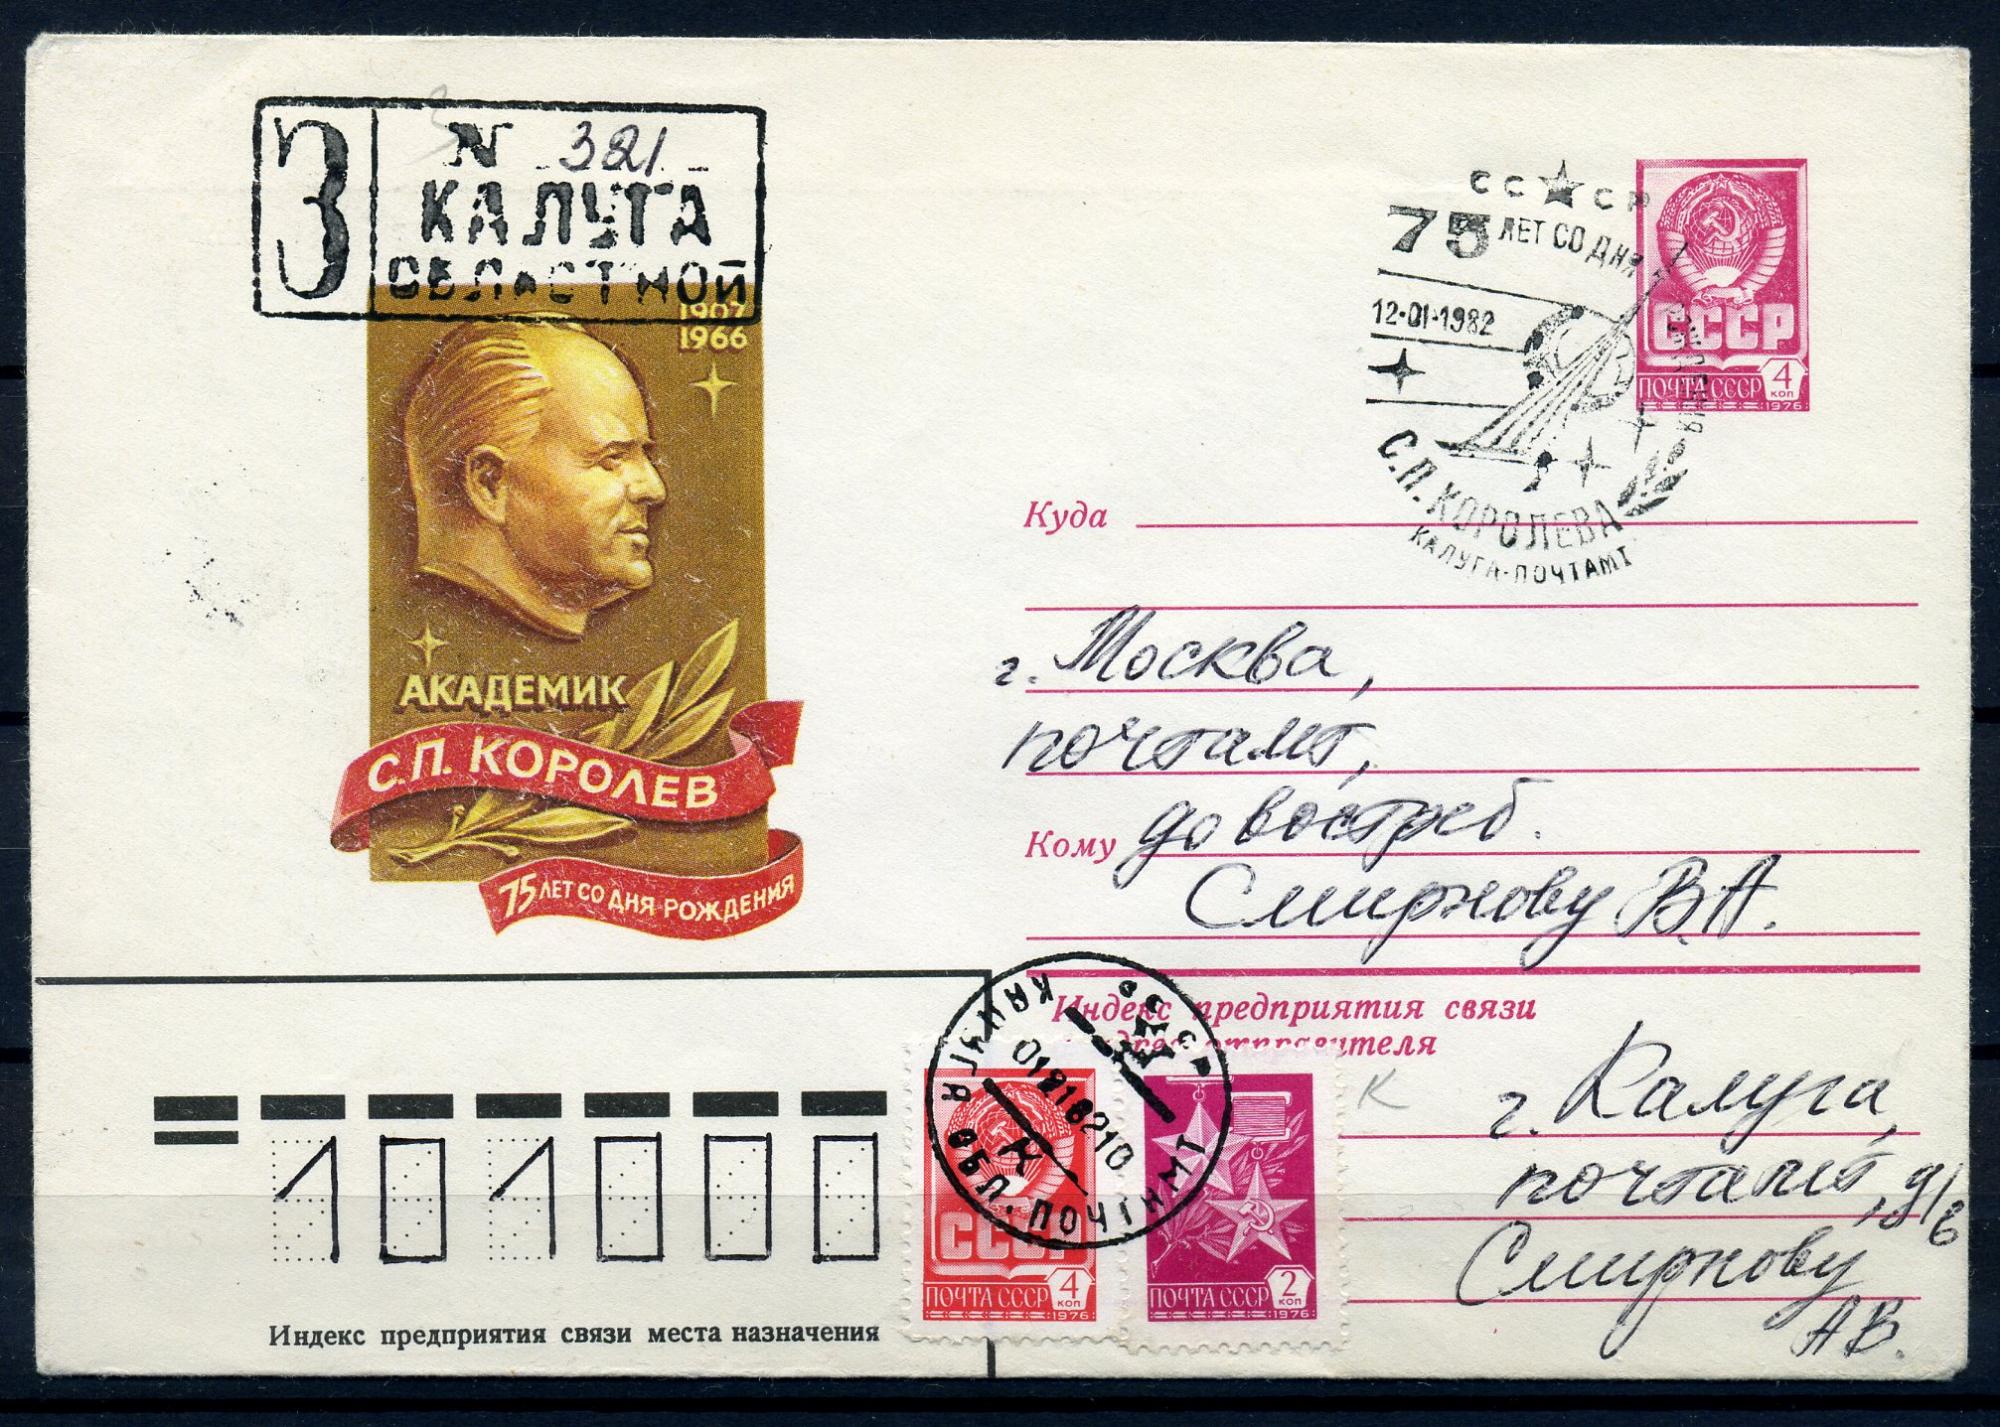 З
N 321
КАЛУГА
ОБЛАСТНОЙ
1907
1966
АКАДЕМИК
С.П. КОРОЛЕВ
75 ЛЕТ СО ДНЯ РОЖДЕНИЯ
СССР
75 ЛЕТ СО ДНЯ РОЖДЕНИЯ
12-01-1982
С.П. КОРОЛЕВА
КАЛУГА-ПОЧТАМТ
СССР
ПОЧТА СССР 4 КОП
1976
Куда
г. Москва,
почтамт,
Кому до востреб.
Смирнову В.А.
Индекс предприятия связи
и адрес отправителя
г. Калуга,
почтамт, д/в
Смирнову
АВ.
КАЛУГА ОБЛ. ПОЧТАМТ
СССР
ПОЧТА СССР 4 КОП
1976
ПОЧТА СССР 2 КОП
1976
101000
Индекс предприятия связи места назначения